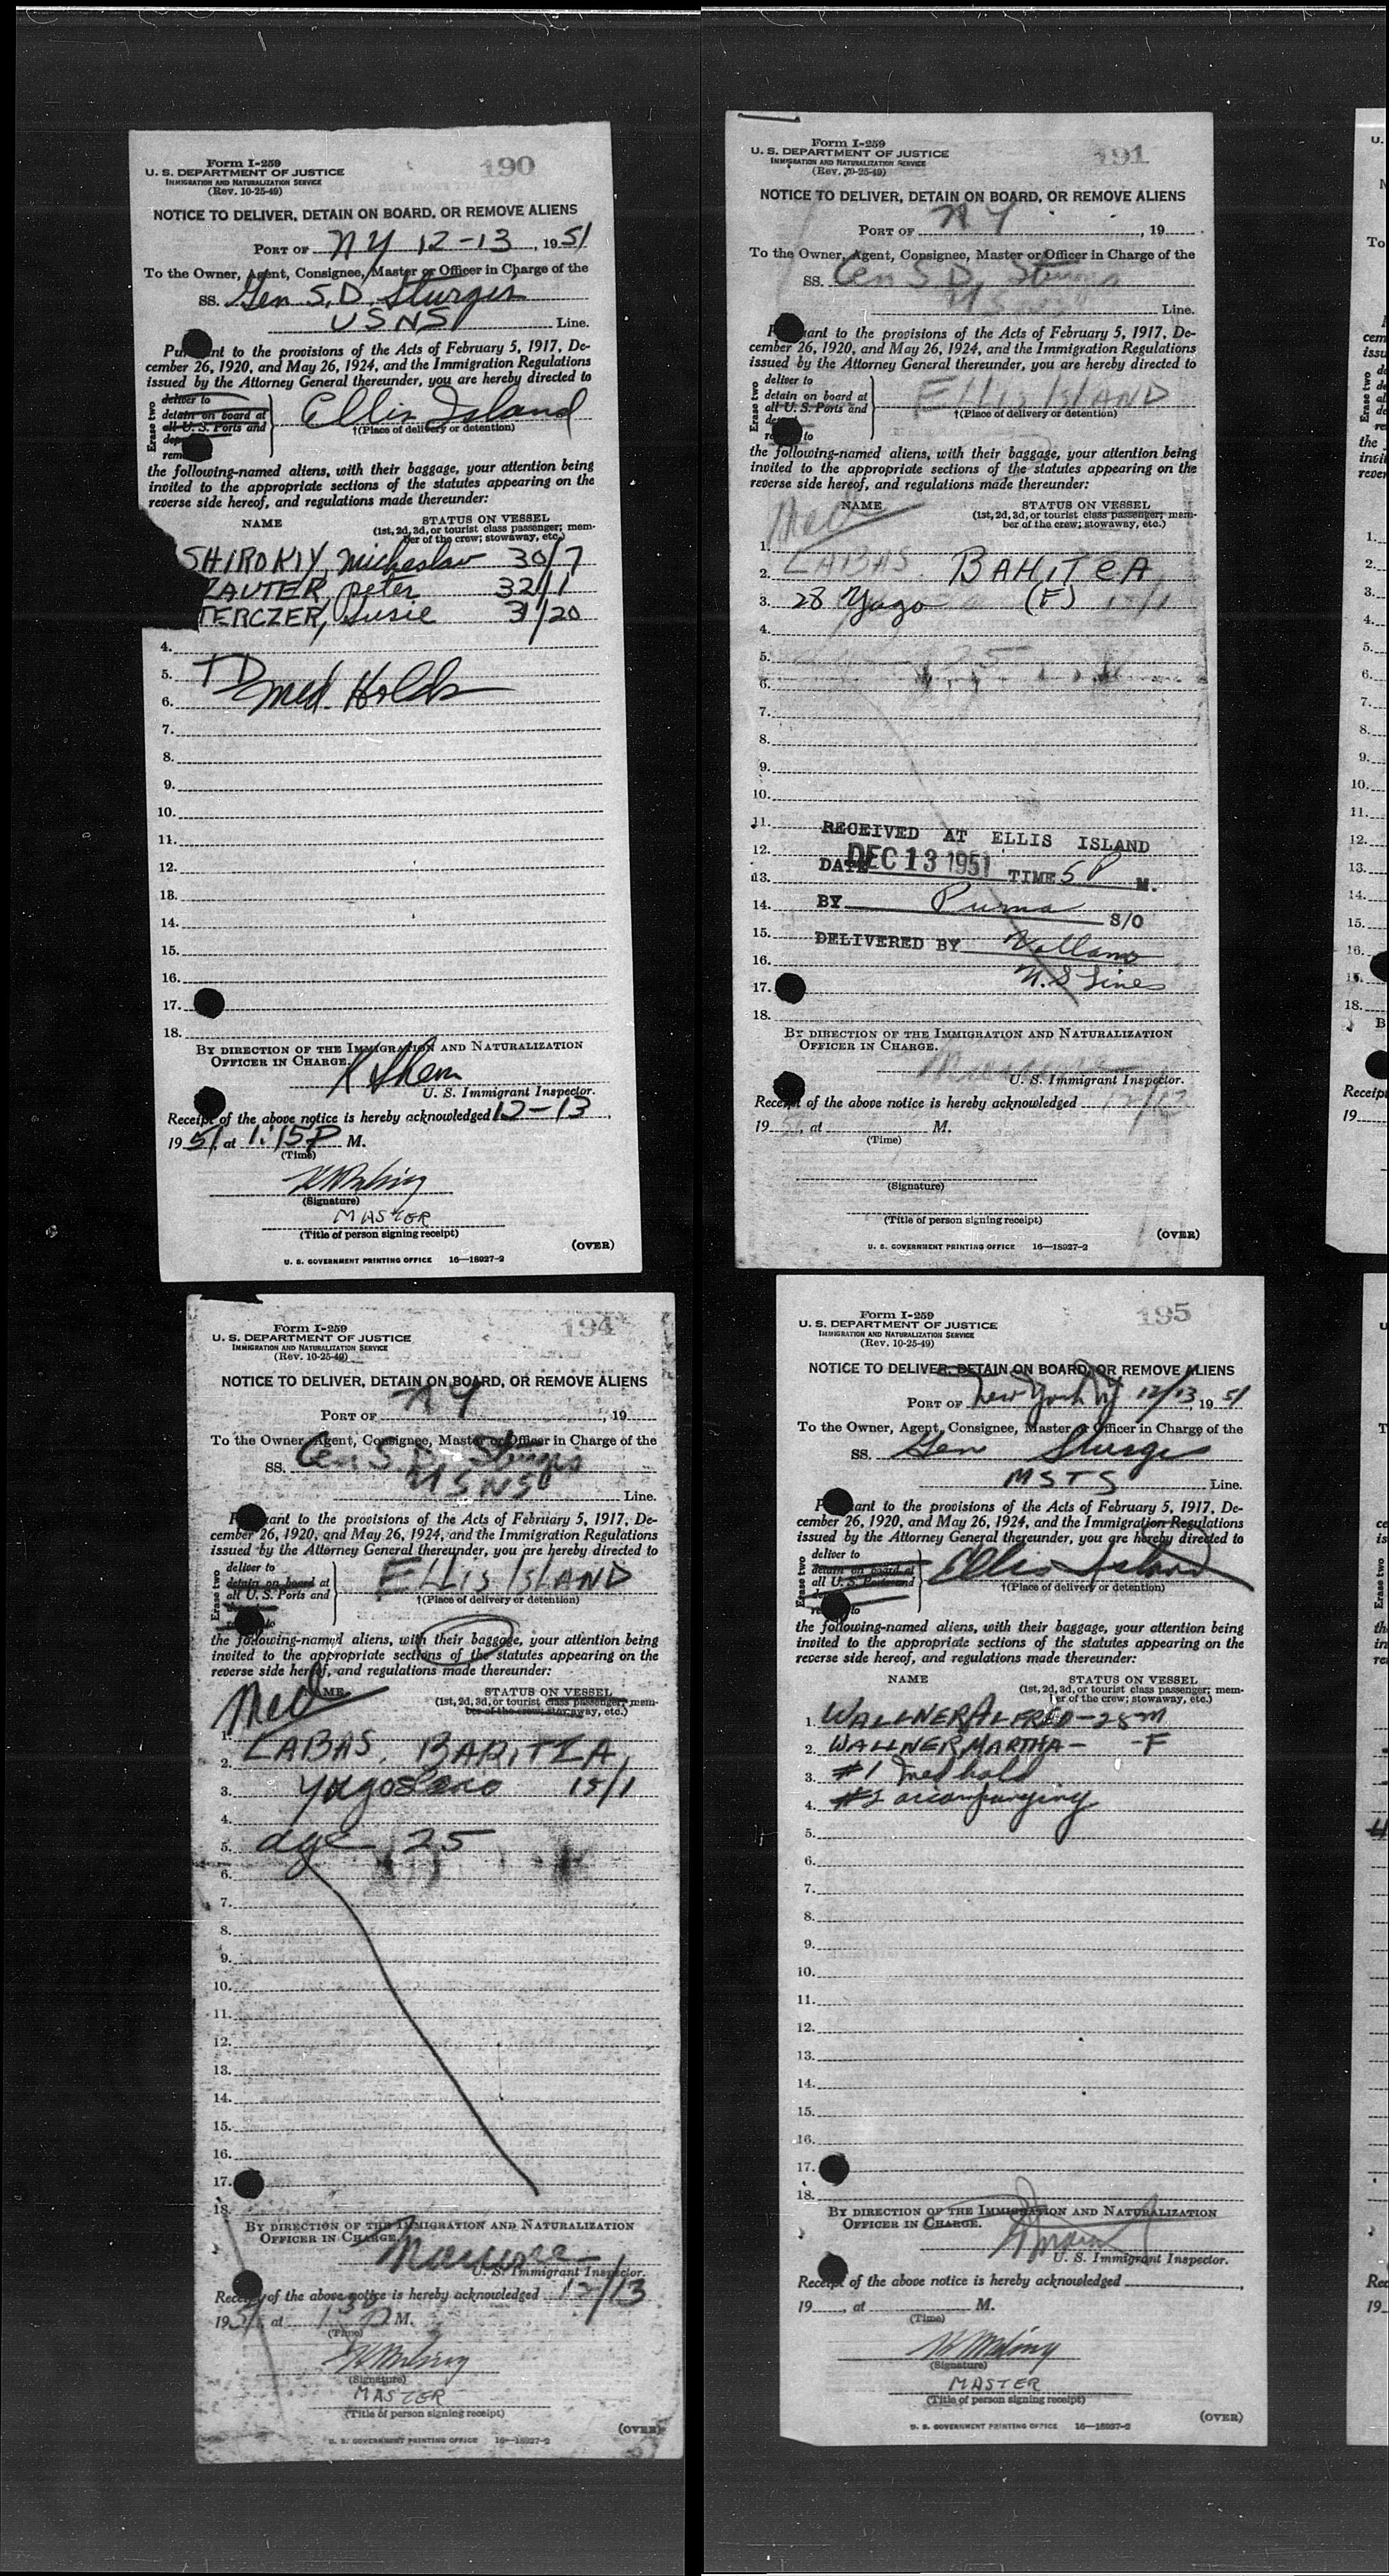 Form I-259
U. S. DEPARTMENT OF JUSTICE
IMMIGRATION AND NATURALIZATION SERVICE
(Rev. 10-25-49)
190
NOTICE TO DELIVER, DETAIN ON BOARD, OR REMOVE ALIENS
PORT OF NY 12-13, 1951
To the Owner, Agent, Consignee, Master or Officer in Charge of the
SS. Gen S.D. Sturgis
USNS Line.
Pursuant to the provisions of the Acts of February 5, 1917, De-
cember 26, 1920, and May 26, 1924, and the Immigration Regulations
issued by the Attorney General thereunder, you are hereby directed to
Erase two
deliver to
detain on board at
all U. S. Ports and
Ellis Island
†(Place of delivery or detention)
the following-named aliens, with their baggage, your attention being
invited to the appropriate sections of the statutes appearing on the
reverse side hereof, and regulations made thereunder:
NAME STATUS ON VESSEL
(1st, 2d, 3d, or tourist class passenger; mem-
ber of the crew; stowaway, etc.)
SHIROKIY, Micheslav 30/7
ZAUTER, Peter 32/1
TERCZER, Susie 31/20
4.
5. TD
6. Med. Holds
7.
8.
9.
10.
11.
12.
13.
14.
15.
16.
17.
18.
BY DIRECTION OF THE IMMIGRATION AND NATURALIZATION
OFFICER IN CHARGE.
U. S. Immigrant Inspector.
Receipt of the above notice is hereby acknowledged 12-13,
1951, at 1:15 P M.
(Time)
(Signature)
MASTER
(Title of person signing receipt)
(OVER)
U. S. GOVERNMENT PRINTING OFFICE 16—18927-2
Form I-259
U. S. DEPARTMENT OF JUSTICE
IMMIGRATION AND NATURALIZATION SERVICE
(Rev. 10-25-49)
191
NOTICE TO DELIVER, DETAIN ON BOARD, OR REMOVE ALIENS
PORT OF NY, 19
To the Owner, Agent, Consignee, Master or Officer in Charge of the
SS. Gen S.D. Sturgis
Line.
Pursuant to the provisions of the Acts of February 5, 1917, De-
cember 26, 1920, and May 26, 1924, and the Immigration Regulations
issued by the Attorney General thereunder, you are hereby directed to
Erase two
deliver to
detain on board at
all U. S. Ports and
to
ELLIS ISLAND
†(Place of delivery or detention)
the following-named aliens, with their baggage, your attention being
invited to the appropriate sections of the statutes appearing on the
reverse side hereof, and regulations made thereunder:
Med
NAME STATUS ON VESSEL
(1st, 2d, 3d, or tourist class passenger; mem-
ber of the crew; stowaway, etc.)
1.
2. LABAS. BAHITCA
3. 28 Yugo (F)
4.
5.
6.
7.
8.
9.
10.
11.
RECEIVED AT ELLIS ISLAND
12.
DATE DEC 13 1951 TIME 5 P M.
13.
14. BY S/O
15. DELIVERED BY
16. U.S Lines
17.
18.
BY DIRECTION OF THE IMMIGRATION AND NATURALIZATION
OFFICER IN CHARGE.
U. S. Immigrant Inspector.
Receipt of the above notice is hereby acknowledged 12/13
19, at M.
(Time)
(Signature)
(Title of person signing receipt)
(OVER)
U. S. GOVERNMENT PRINTING OFFICE 16—18927-2
Form I-259
U. S. DEPARTMENT OF JUSTICE
IMMIGRATION AND NATURALIZATION SERVICE
(Rev. 10-25-49)
194
NOTICE TO DELIVER, DETAIN ON BOARD, OR REMOVE ALIENS
PORT OF NY, 19
To the Owner, Agent, Consignee, Master or Officer in Charge of the
SS. Gen. S.D. Sturgis
USNS Line.
Pursuant to the provisions of the Acts of February 5, 1917, De-
cember 26, 1920, and May 26, 1924, and the Immigration Regulations
issued by the Attorney General thereunder, you are hereby directed to
Erase two
deliver to
detain on board at
all U. S. Ports and
to
ELLIS ISLAND
†(Place of delivery or detention)
the following-named aliens, with their baggage, your attention being
invited to the appropriate sections of the statutes appearing on the
reverse side hereof, and regulations made thereunder:
Med
STATUS ON VESSEL
(1st, 2d, 3d, or tourist class passenger; mem-
ber of the crew; stowaway, etc.)
1.
2. LABAS. BARITZA
3. 15/1
4.
5. age 25
6.
7.
8.
9.
10.
11.
12.
13.
14.
15.
16.
17.
18.
BY DIRECTION OF THE IMMIGRATION AND NATURALIZATION
OFFICER IN CHARGE.
U. S. Immigrant Inspector.
Receipt of the above notice is hereby acknowledged 12/13
1951 at 130 P M.
(Time)
(Signature)
MASTER
(Title of person signing receipt)
(OVER)
U. S. GOVERNMENT PRINTING OFFICE 16—18927-2
Form I-259
U. S. DEPARTMENT OF JUSTICE
IMMIGRATION AND NATURALIZATION SERVICE
(Rev. 10-25-49)
195
NOTICE TO DELIVER, DETAIN ON BOARD, OR REMOVE ALIENS
PORT OF New York NY 12/13, 1951
To the Owner, Agent, Consignee, Master or Officer in Charge of the
SS. Gen Sturgis
MSTS Line.
Pursuant to the provisions of the Acts of February 5, 1917, De-
cember 26, 1920, and May 26, 1924, and the Immigration Regulations
issued by the Attorney General thereunder, you are hereby directed to
Erase two
deliver to
detain on board at
all U. S. Ports and
to
Ellis Island
†(Place of delivery or detention)
the following-named aliens, with their baggage, your attention being
invited to the appropriate sections of the statutes appearing on the
reverse side hereof, and regulations made thereunder:
NAME STATUS ON VESSEL
(1st, 2d, 3d, or tourist class passenger; mem-
ber of the crew; stowaway, etc.)
1. WALLNER ALFRED-28M
2. WALLNER MARTHA- -F
3. #1 Med hold
4. #2 accompanying
5.
6.
7.
8.
9.
10.
11.
12.
13.
14.
15.
16.
17.
18.
BY DIRECTION OF THE IMMIGRATION AND NATURALIZATION
OFFICER IN CHARGE.
U. S. Immigrant Inspector.
Receipt of the above notice is hereby acknowledged ,
19, at M.
(Time)
(Signature)
MASTER
(Title of person signing receipt)
(OVER)
U. S. GOVERNMENT PRINTING OFFICE 16—18927-2